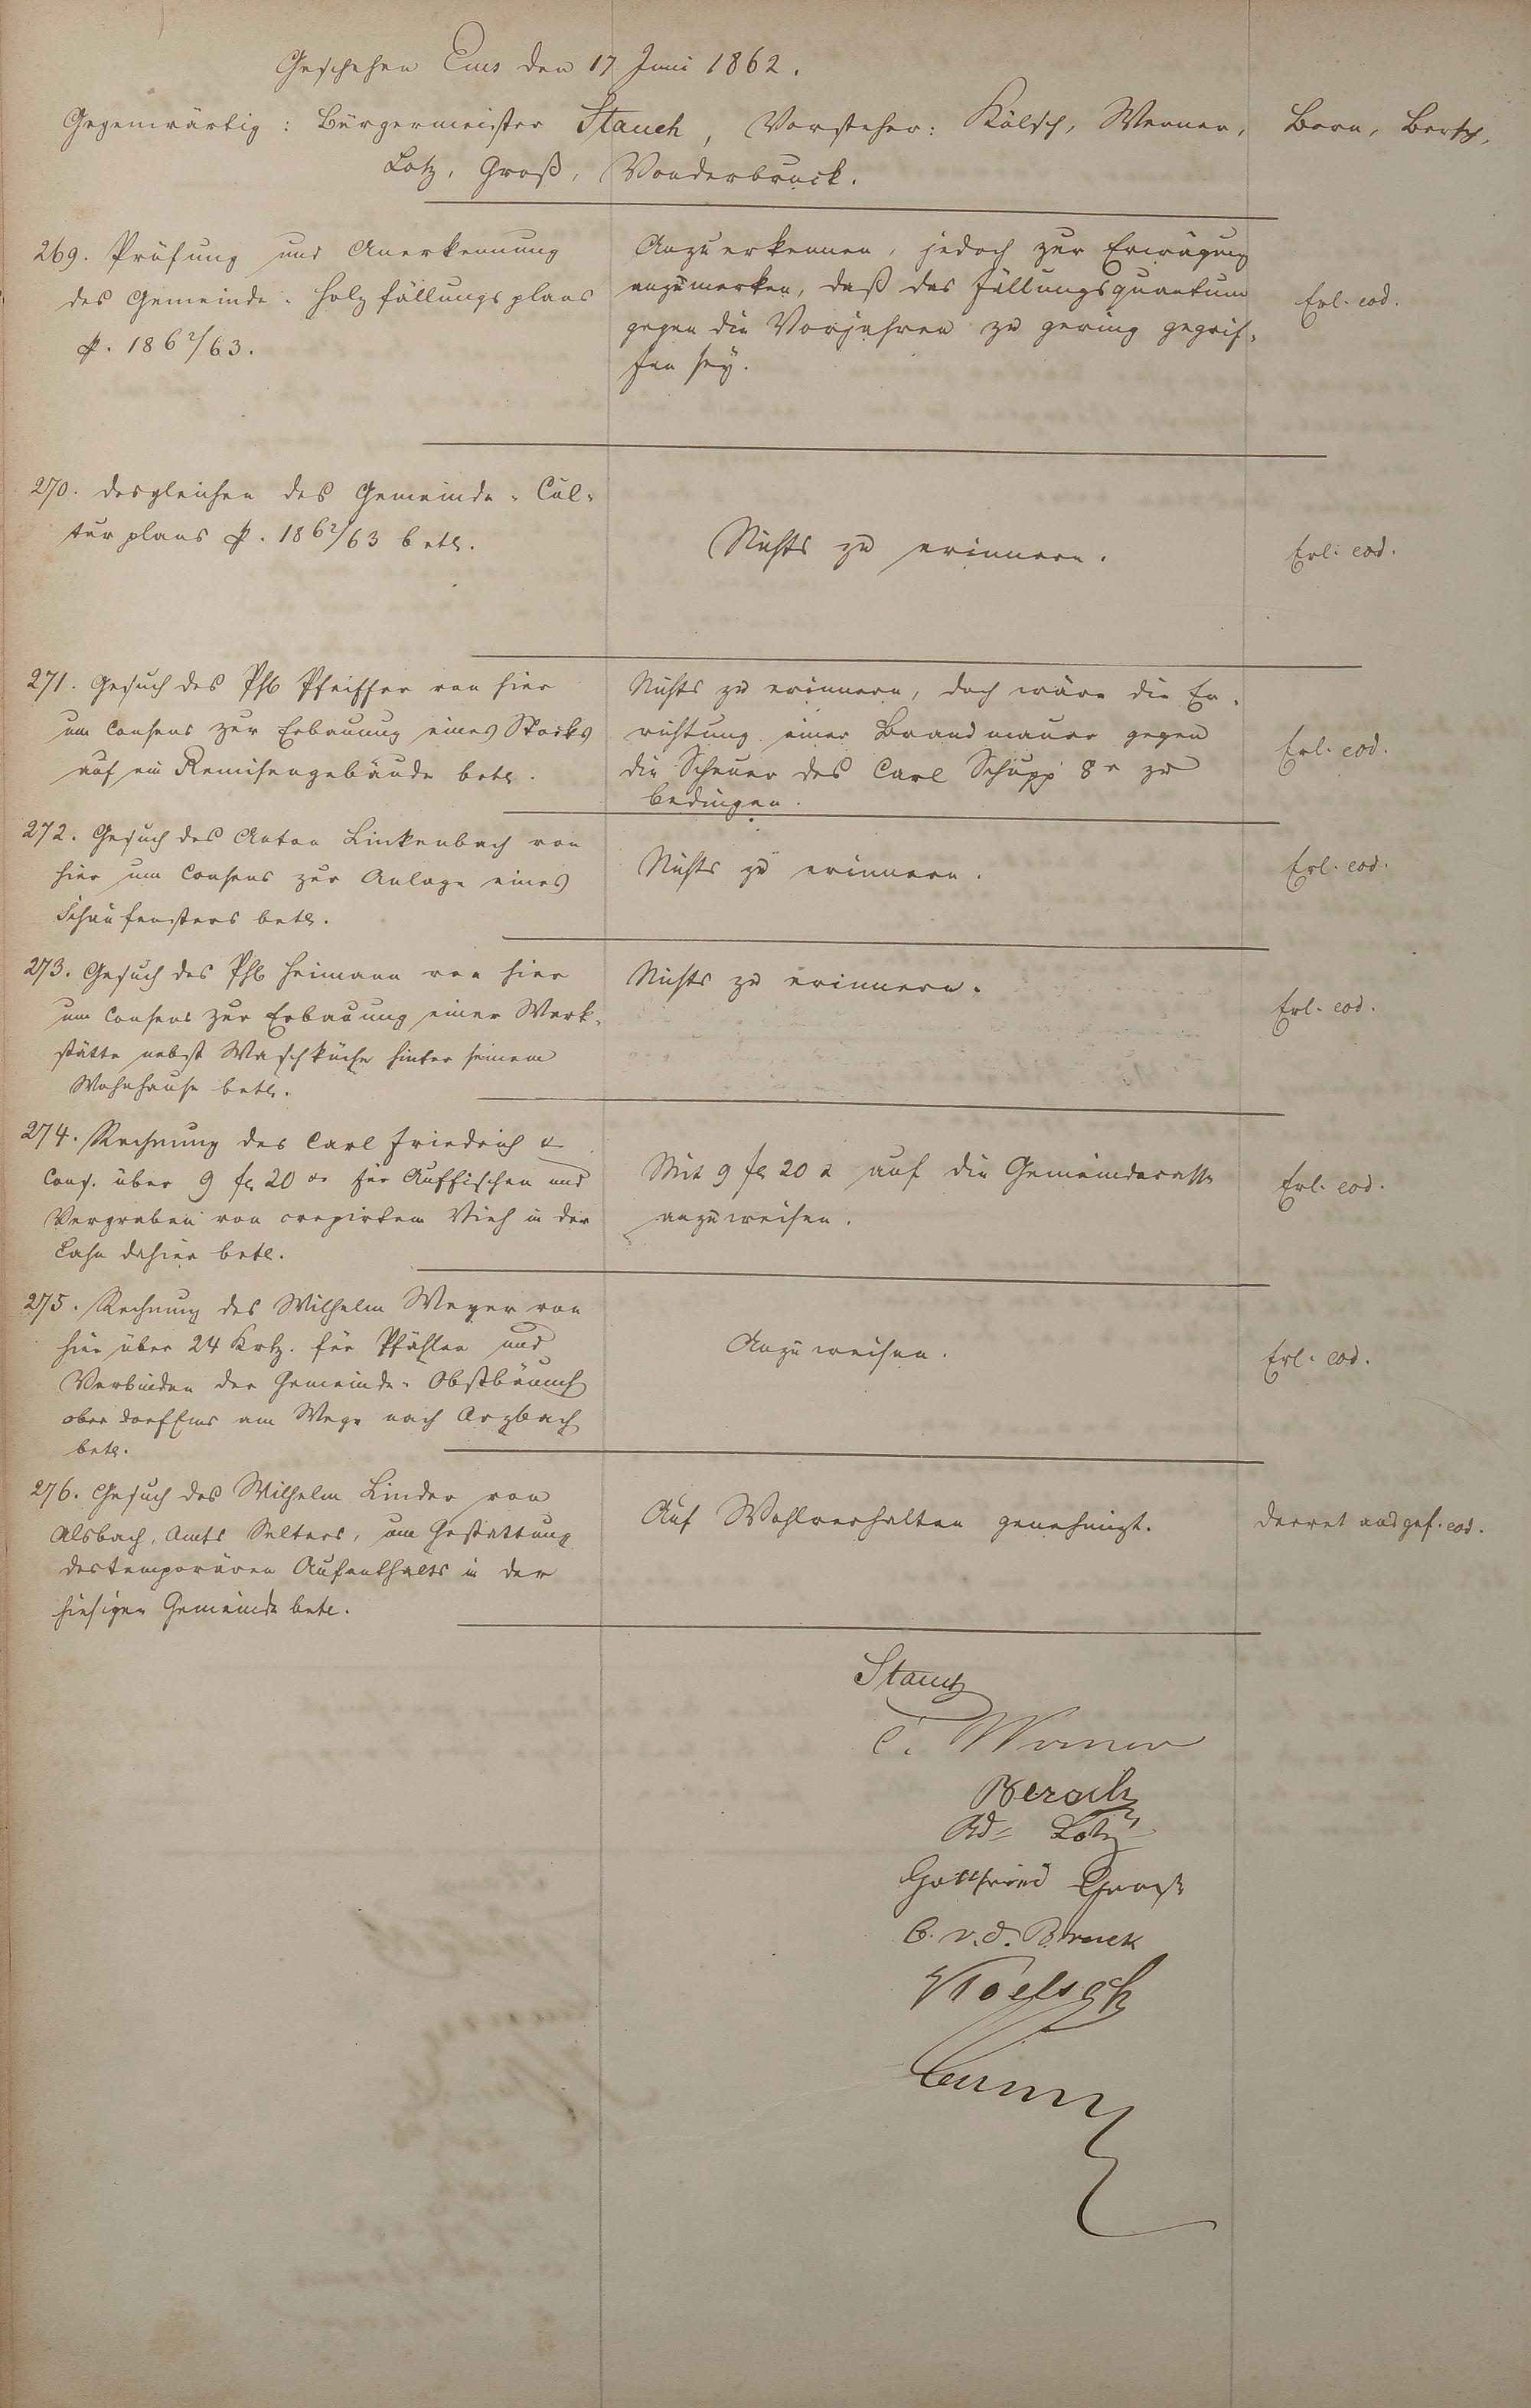 Geschehen Ems den 17 Juni 1862.
Gegenwärtig: Bürgermeister Stauch, Vorsteher: Kölsch, Werner, Born, Bertsch,
Lotz, Groß, Vonderbruck.
269. Prüfung und Anerkennung
des Gemeinde-Holzfällungsplans
p. 1862/63.
Anzuerkennen, jedoch zur Erwägung
anzumerken, daß das Fällungsquantum
gegen die Vorjahren zu gering gegrif-
fen sey.
Erl. eod.
270. desgleichen des Gemeinde-Cul-
turplans p. 1862/63 betr.
Nichts zu erinnern.
Erl. eod.
271. Gesuch des Phl Pfeiffer von hier
um Consens zur Erbauung eines Stocks
auf ein Remisengebäude betr.
Nichts zu erinnern, doch wäre die Er-
richtung einer Brandmauer gegen
die Scheuer des Carl Schupp 8r zu
bedingen.
Erl. eod.
272. Gesuch des Anton Linkenbach von
hier um Consens zur Anlage eines
Schaufensters betr.
Nichts zu erinnern.
Erl. eod.
273. Gesuch des Phl Heimann von hier
um Consens zur Erbauung einer Werk-
stätte nebst Waschküche hinter seinem
Wohnhause betr.
Nichts zu erinnern.
Erl. eod.
274. Rechnung des Carl Friedrich &
Cons. über 9 fl 20 xr für Auffischen und
Vergraben von crepirtem Vieh in der
Lahn dahier betr.
Mit 9 fl 20 x auf die Gemeindecasse
anzuweisen.
Erl. eod.
275. Rechnung des Wilhelm Weyer von
hier über 24 Krtz. für Pfählen und
Verbinden der Gemeinde-Obstbäume
ober Dorf Ems am Wege nach Arzbach
betr.
Anzuweisen.
Erl. eod.
276. Gesuch des Wilhelm Linder von
Alsbach, Amts Selters, um Gestattung
des temporären Aufenthalts in der
hiesigen Gemeinde betr.
Auf Wohlverhalten genehmigt.
Decret ausgef. eod.
Stauch
C. Werner
Bersch
Ad. Lotz
Gottfried Groß
C. v. d. Bruck
Koelsch